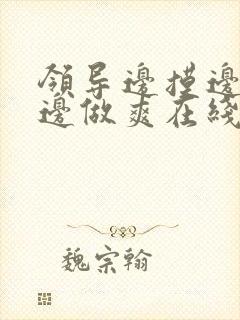 領导邊摸邊
邊做爽在綫
魏宗翰